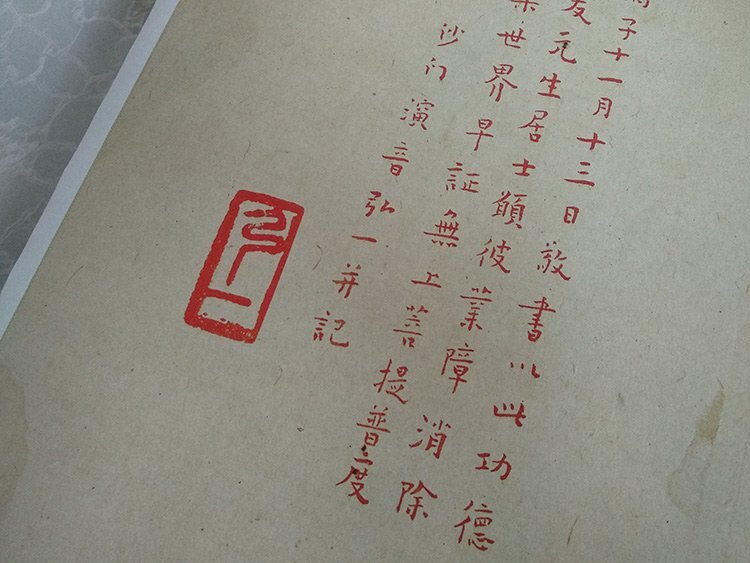 子十一月十三日敬書以此功德
友元生居士願彼業障消除
世界早証無上菩提普度
沙门演音弘一并記